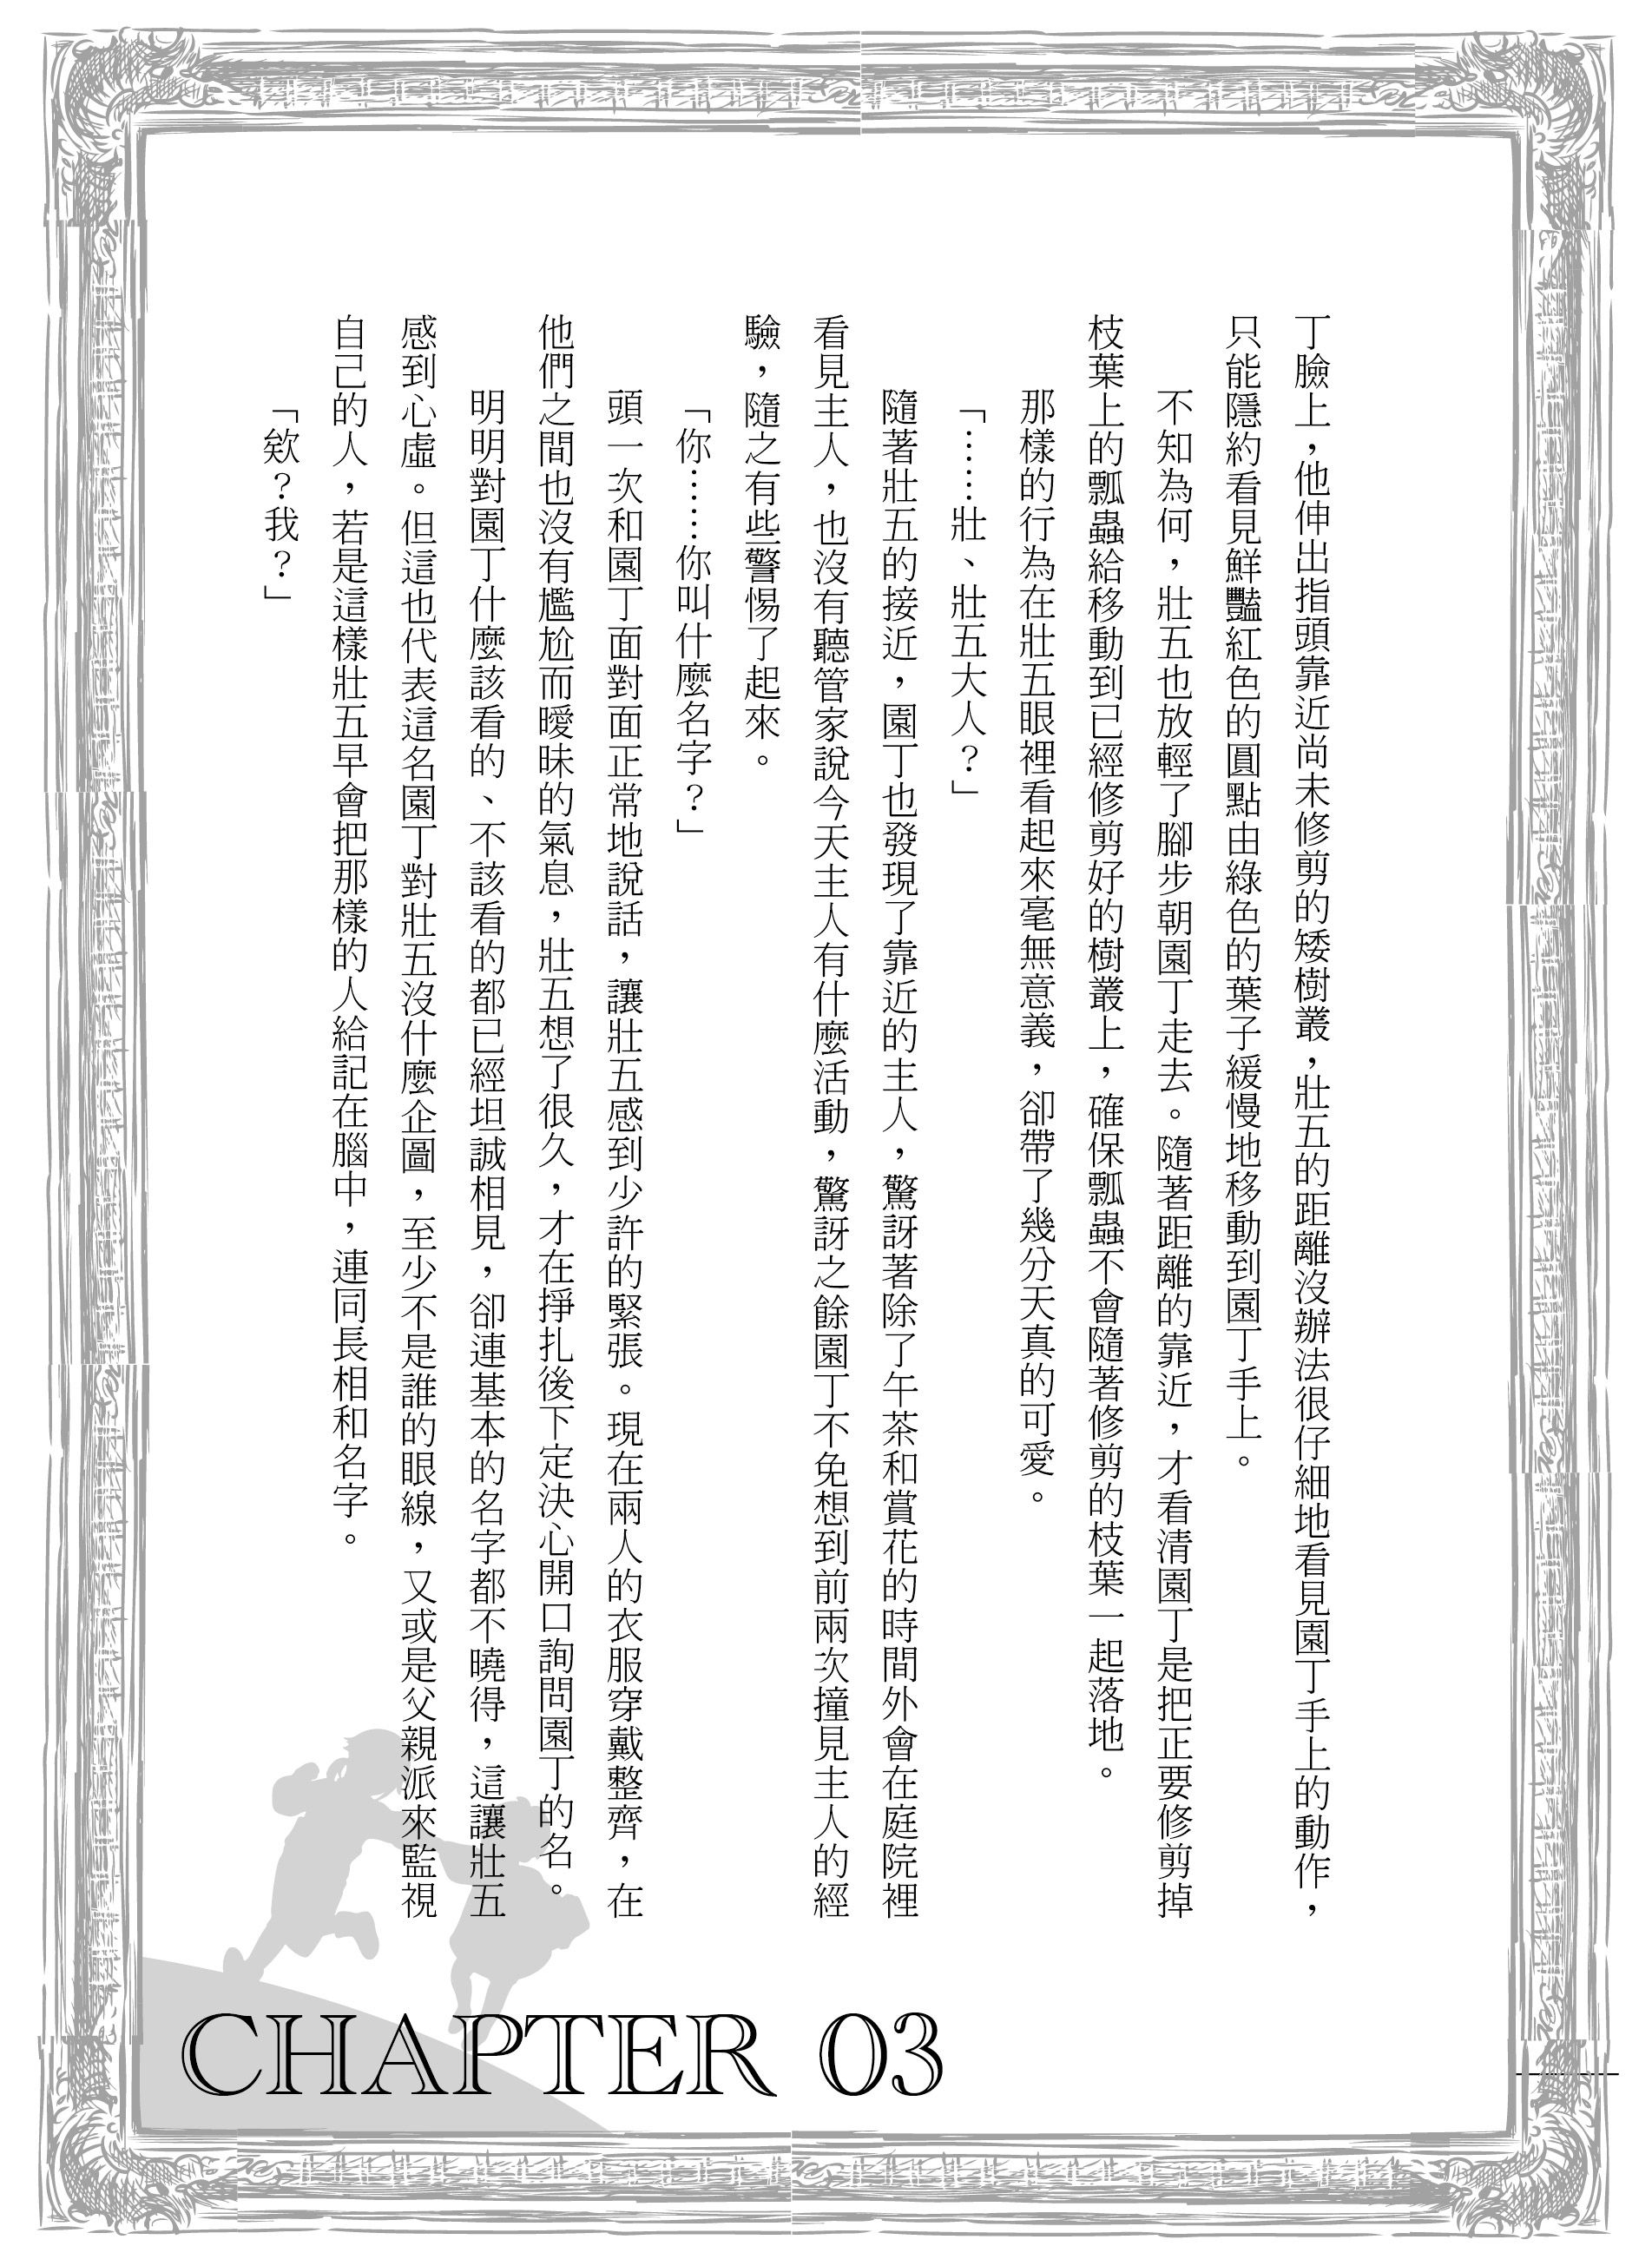 丁臉上，他伸出指頭靠近尚未修剪的矮樹叢，壯五的距離沒辦法很仔細地看見園丁手上的動作，
只能隱約看見鮮豔紅色的圓點由綠色的葉子緩慢地移動到園丁手上。
不知為何，壯五也放輕了腳步朝園丁走去。隨著距離的靠近，才看清園丁是把正要修剪掉
枝葉上的瓢蟲給移動到已經修剪好的樹叢上，確保瓢蟲不會隨著修剪的枝葉一起落地。
那樣的行為在壯五眼裡看起來毫無意義，卻帶了幾分天真的可愛。
「……壯、壯五大人？」
隨著壯五的接近，園丁也發現了靠近的主人，驚訝著除了午茶和賞花的時間外會在庭院裡
看見主人，也沒有聽管家說今天主人有什麼活動，驚訝之餘園丁不免想到前兩次撞見主人的經
驗，隨之有些警惕了起來。
「你……你叫什麼名字？」
頭一次和園丁面對面正常地說話，讓壯五感到少許的緊張。現在兩人的衣服穿戴整齊，在
他們之間也沒有尷尬而曖昧的氣息，壯五想了很久，才在掙扎後下定決心開口詢問園丁的名。
明明對園丁什麼該看的、不該看的都已經坦誠相見，卻連基本的名字都不曉得，這讓壯五
感到心虛。但這也代表這名園丁對壯五沒什麼企圖，至少不是誰的眼線，又或是父親派來監視
自己的人，若是這樣壯五早會把那樣的人給記在腦中，連同長相和名字。
「欸？我？」
CHAPTER 03